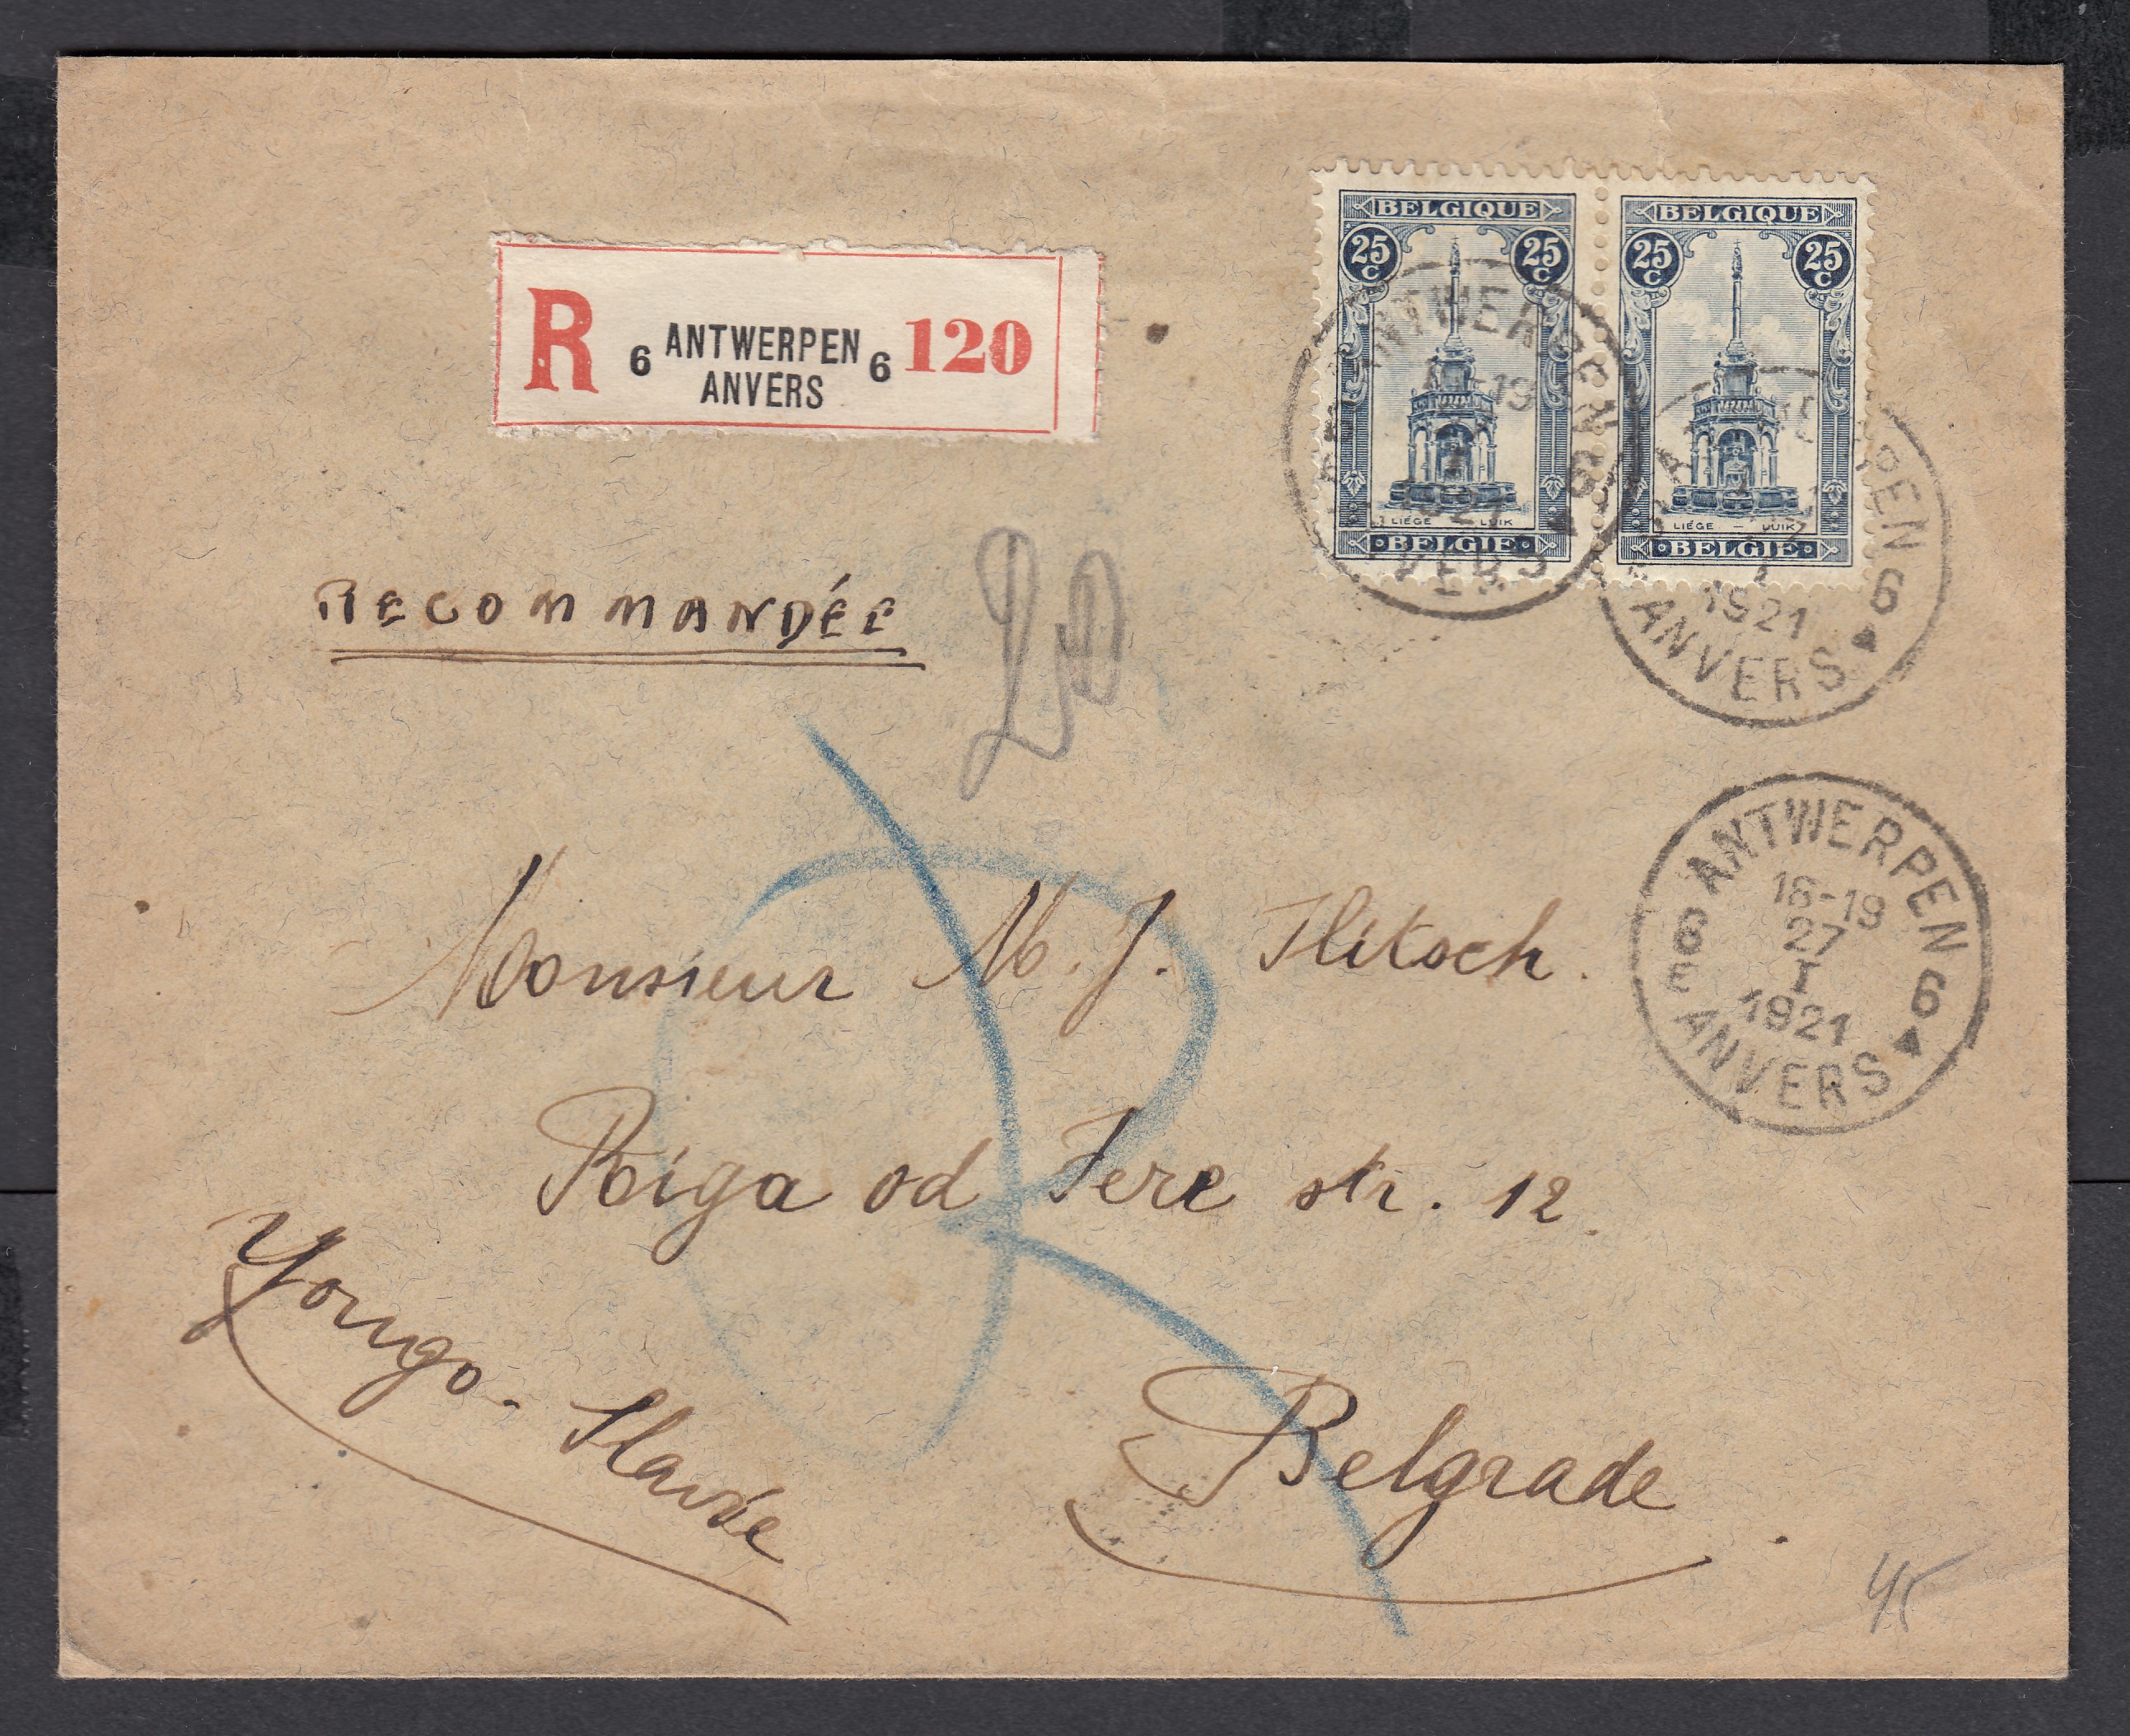 R 6 ANTWERPEN 6 120
ANVERS
BELGIQUE
25 C 25 C
LIÉGE — LUIK
BELGIE
BELGIQUE
25 C 25 C
LIÉGE — LUIK
BELGIE
ANTWERPEN 6
1921
ANVERS
ANTWERPEN 6
1921
ANVERS
RECOMMANDÉE
20
R
ANTWERPEN
18-19
6 27 6
E I
1921
ANVERS
Monsieur M. J. Ilitsch.
Riga od Fere str. 12.
Yougo-Slavie
Belgrade
45